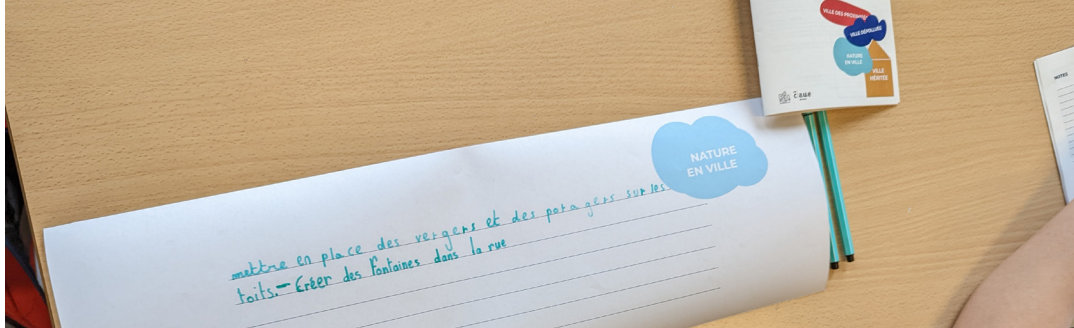 VILLE DES PROXIMITÉS
VILLE DÉPOLLUÉE
NATURE
EN VILLE
VILLE
HÉRITÉE
NOTES
NATURE
EN VILLE
mettre en place des vergers et des potagers sur les
toits.- Créer des Fontaines dans la rue